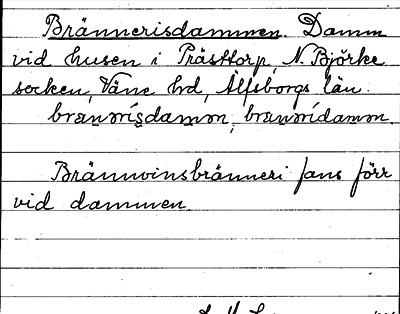 Brännerisdammen. Damm
vid husen i Prästtorp, N. Björke
socken, Väne hd, Älfsborgs län.
Brännvinsbränneri fans förr
vid dammen